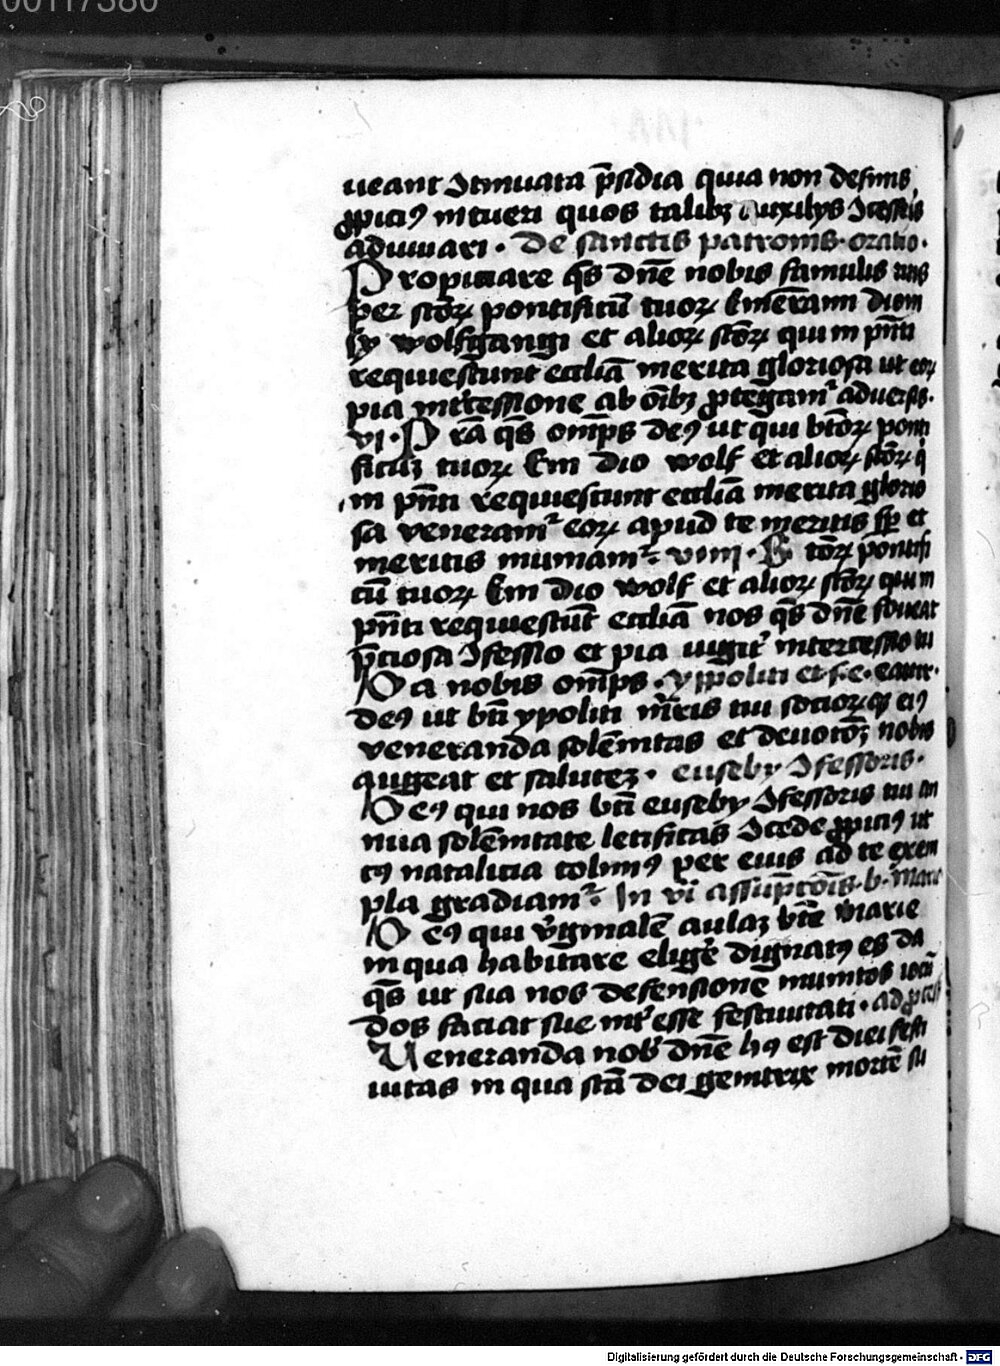 00117380
ueant ꝯtinuata p̄sidia quia non desinis
ꝓpiciꝰ intueri quos talibꝫ auxilijs ꝯcesseris
adiuuari · De sanctis patronis · oratio ·
Propiciare qs̄ dn̄e nobis famulis tuis
per sc̄oꝝ pontificū tuoꝝ Emerāmi dioni
sy wolfgangi et alioꝝ sc̄oꝝ qui in pn̄ti
requiescunt ecclīa merita gloriosa ut eoꝝ
pia int̄cessione ab oīb; ꝓtegam᷑ aduersis ·
vi · P rā qs̄ omp̄s deꝰ ut qui btōꝝ ponti
ficuꝫ tuoꝝ Em dio wolf et alioꝝ sc̄oꝝ q
in pn̄ti requiescunt ecclīa merita glorio
sa veneram᷑ eoꝝ apud te meritis sp̄ et
meritis muniam᷑ · toꝝ pontifi
cū tuoꝝ Em dio wolf et alioꝝ sc̄oꝝ qui in
pn̄ti requiescūt ecclīa nos qs̄ dn̄e foueat
p̄ciosa ꝯfessio et pia iugit᷑ intercessio tu
Da nobis omp̄s · yppoliti et
deꝰ ut bt̄i ypoliti mr̄is tui socioꝝqꝫ eiꝰ
veneranda solēnitas et deuotōꝫ nobis
augeat et saluteꝫ · eusebij ꝯfessoris ·
Deꝰ qui nos bt̄i eusebij ꝯfessoris tui an
nua solēnitate letificas ꝯcede ꝓpiciꝰ ut
cꝰ natalicia colimꝰ per eius ad te exem
pla gradiam᷑ · In vi assūptōis · b · marie
Deꝰ qui v̄ginalē aulaꝫ bt̄e marie
in qua habitare elige᷑ dignatꝰ es da
qs̄ ut sua nos defensione munitos iocū
dos faciat sue int᷑esse festiuitati · ad
Veneranda nob̄ dn̄e hꝰ est diei festi
uitas in qua sc̄a dei genitrix mortē su
Digitalisierung gefördert durch die Deutsche Forschungsgemeinschaft - DFG